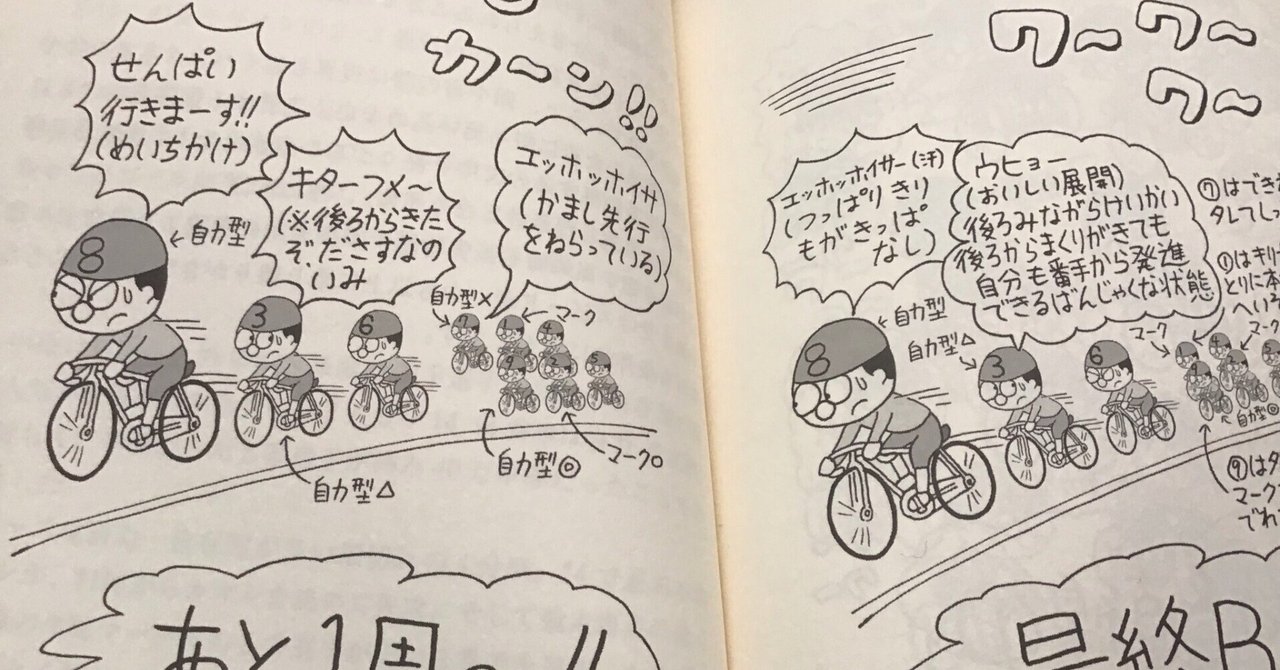 カーン!!
せんぱい
行きまーす!!
(めいちかけ)
←自力型
キターフメ〜
(※後ろからきた
ぞ、ださすなの
いみ
エッホッホイサ
(かまし先行
をねらっている)
自力型×
マーク
8
3
6
7
1
4
9
2
5
自力型△
自力型◎
マーク○
あと1周
ワーワー
ワ〜
エッホッホイサー(汗)
(つっぱりきり
もがきっぱ
なし)
ウヒョー
(おいしい展開)
後ろみながらけいかい
後ろからまくりがきても
自分も番手から発進
できるばんじゃくな状態
⑦はでき
タレてし
①はきり
とりに本
へい
マーク
←自力型
自力型△
マーク
8
3
6
4
自力型◎
⑨はタ
マーク
でわ
最終B